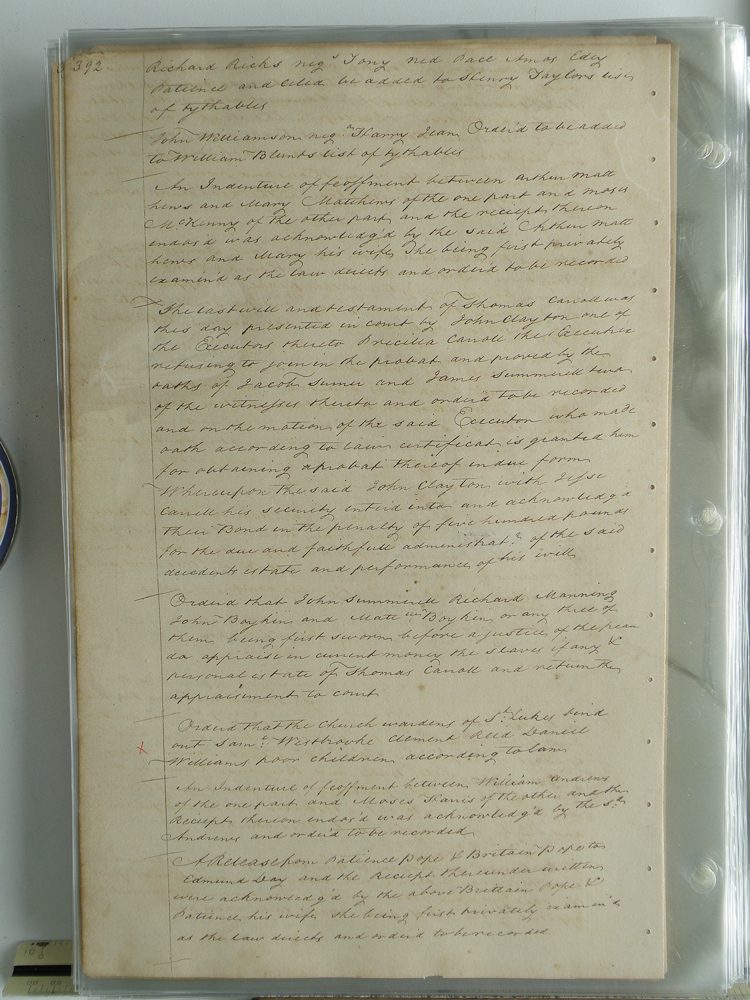 392
Richard Ricks neg.s Tony ned Pall Amos Edey
Patience and Celid be added to Henry Taylors list
of tythables
John Williamson neg.s Harry Jean Order'd to be added
to William Blunts list of tythables
An Indenture of feoffment between Arthur Matt
hews and Mary Matthews of the one part and Moses
McKenny of the other part and the receipt thereon
endors'd was acknowledg'd by the said Arthur Matt
hews and Mary his wife She being first privately
examin'd as the law directs and order'd to be recorded
The last will and testament of Thomas Carrell was
this day presented in court by John Clayton one of
the Executors thereto Priscilla Carrell the Executrix
refusing to join in the probat and proved by the
oaths of Jacob Turner and James Summerell two
of the witnesses thereto and order'd to be recorded
and on the motion of the said Executor who made
oath according to law certificate is granted him
for obtaining a probat thereof in due form
Whereupon the said John Clayton with Jesse
Carrell his security enter'd into and acknowledg'd
their Bond in the penalty of five hundred pounds
for the due and faithfull administrat.n of the said
decedents estate and performance of his will
Order'd that John Summerell Richard Manning
John Boykin and Boykin or any three of
them being first sworn before a justice of the peace
do appraise in current money the slaves if any &
personal estate of Thomas Carrell and return the
appraisement to court
Order'd that the Church wardens of St. Lukes bind
out Sam.l Westbrooke Clement Reed Daniel
Williams poor children according to law
An Indenture of feoffment between William Andrews
of the one part and Moses Harris of the other and the
Receipt thereon endors'd was acknowledg'd by the s.d
Andrews and order'd to be recorded
A Release from Patience Pope & Britain Pope to
Edmund Day and the Receipt thereunder written
were acknowledg'd by the above Brittain Pope &
Patience his wife she being first privately examin'd
as the law directs and order'd to be recorded